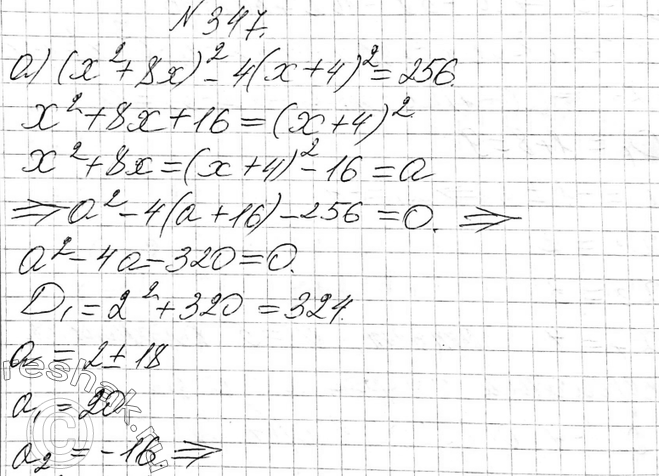 № 347.
а) (x²+8x)²-4(x+4)²=256.
x²+8x+16=(x+4)².
x²+8x=(x+4)²-16=a
⇒a²-4(a+16)-256=0. ⇒
a²-4a-320=0.
D₁=2²+320=324.
a=2±18
a₁=20
a₂=-16 ⇒
reshak.ru